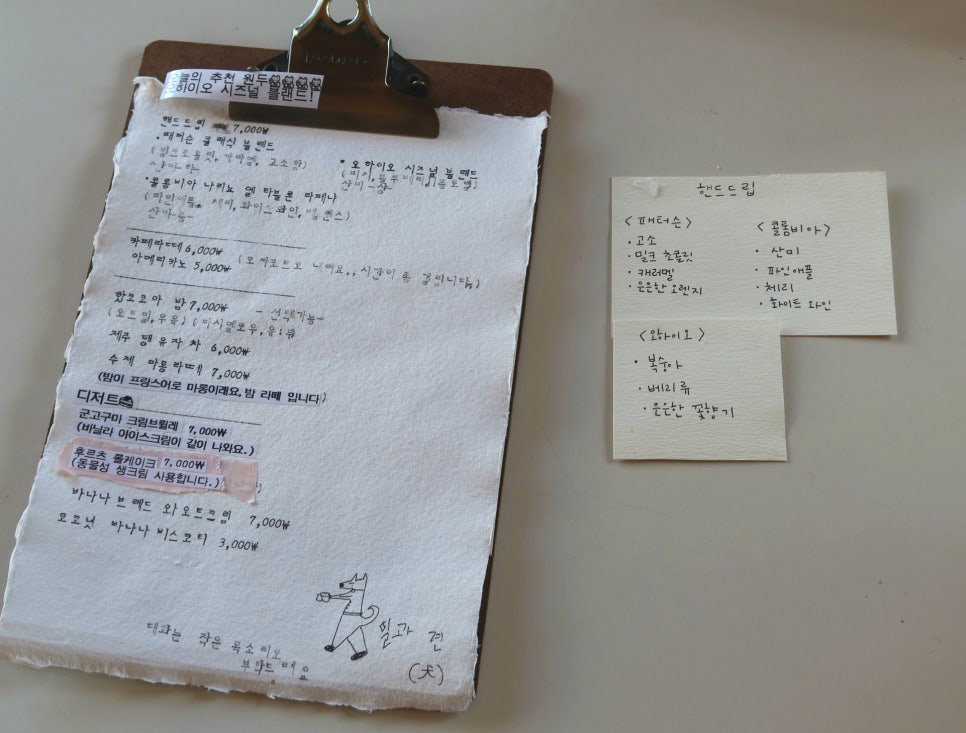 오늘의 추천 원두
오하이오 시즈널 블랜드!
핸드드립 7,000₩
• 패터슨 클래식 블랜드
(밀크초콜릿, 카라멜, 고소함)
산미-하-
• 오하이오 시즈널 블랜드
(피치, 블루베리, 플로럴)
산미-상-
• 콜롬비아 나리뇨 엘 타블론 마페나
(파인애플, 체리, 화이트와인, 밸런스)
산미-중-
카페라떼 6,000₩
아메리카노 5,000₩ (모카포트로 나와요,, 시간이 좀 걸립니다,,)
핫코코아 밤 7,000₩ - 선택가능-
(오트밀, 우유)
제주 댕유자차 6,000₩
수제 마롱라떼 7,000₩
(밤이 프랑스어로 마롱이래요, 밤 라떼 입니다)
디저트
군고구마 크림브륄레 7,000₩
(바닐라 아이스크림이 같이 나와요.)
후르츠 롤케이크 7,000₩
(동물성 생크림 사용합니다.)
바나나 브레드 와 오트크림 7,000₩
코코넛 바나나 비스코티 3,000₩
필과 견
(犬)
대화는 작은 목소리로
부탁드려요
핸드드립
<패터슨>
• 고소
• 밀크 초콜릿
• 캐러멜
• 은은한 오렌지
<콜롬비아>
• 산미
• 파인애플
• 체리
• 화이트 와인
<오하이오>
• 복숭아
• 베리류
• 은은한 꽃향기